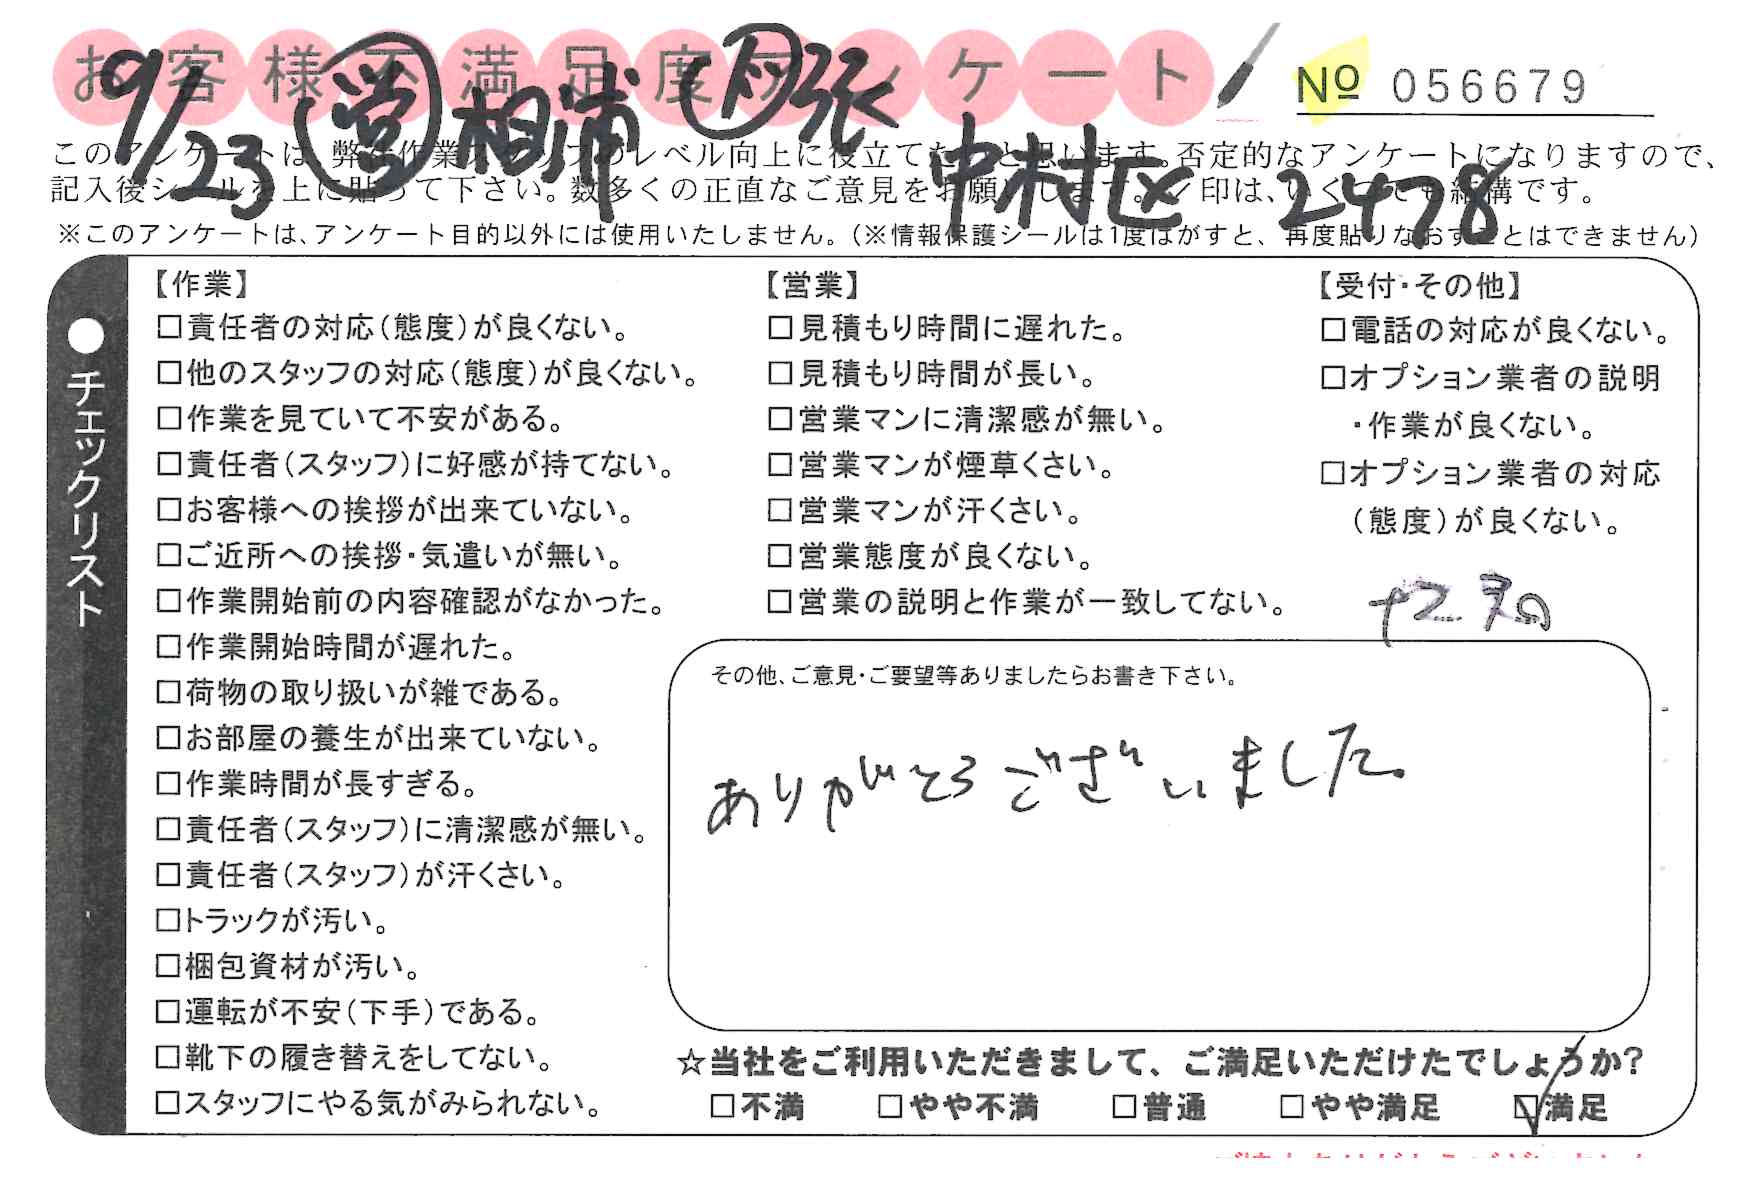 お客様不満足度アンケート
№ 056679
9/23 営 相浦 ト 張 中村区 2478
このアンケートは、弊社作業スタッフのレベル向上に役立てたいと思います。否定的なアンケートになりますので、
記入後シールを上に貼って下さい。数多くの正直なご意見をお願いします。✓印は、いくつでも結構です。
※このアンケートは、アンケート目的以外には使用いたしません。(※情報保護シールは1度はがすと、再度貼りなおすことはできません)
●チェックリスト
【作業】
□責任者の対応(態度)が良くない。
□他のスタッフの対応(態度)が良くない。
□作業を見ていて不安がある。
□責任者(スタッフ)に好感が持てない。
□お客様への挨拶が出来ていない。
□ご近所への挨拶・気遣いが無い。
□作業開始前の内容確認がなかった。
□作業開始時間が遅れた。
□荷物の取り扱いが雑である。
□お部屋の養生が出来ていない。
□作業時間が長すぎる。
□責任者(スタッフ)に清潔感が無い。
□責任者(スタッフ)が汗くさい。
□トラックが汚い。
□梱包資材が汚い。
□運転が不安(下手)である。
□靴下の履き替えをしてない。
□スタッフにやる気がみられない。
【営業】
□見積もり時間に遅れた。
□見積もり時間が長い。
□営業マンに清潔感が無い。
□営業マンが煙草くさい。
□営業マンが汗くさい。
□営業態度が良くない。
□営業の説明と作業が一致してない。
【受付・その他】
□電話の対応が良くない。
□オプション業者の説明
・作業が良くない。
□オプション業者の対応
(態度)が良くない。
その他、ご意見・ご要望等ありましたらお書き下さい。
ありがとうございました。
☆当社をご利用いただきまして、ご満足いただけたでしょうか?
□不満 □やや不満 □普通 □やや満足 ☑満足